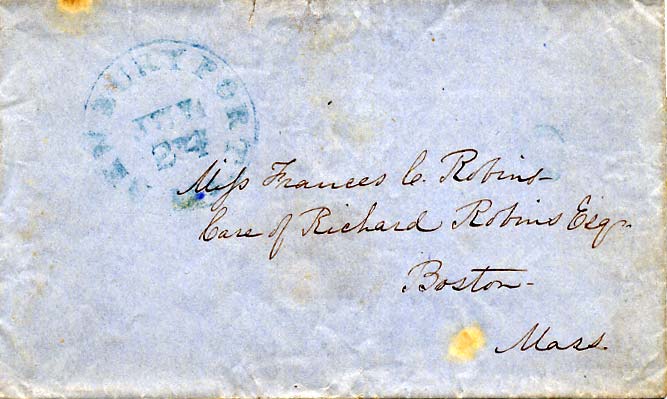 NEWBURYPORT
Miss Frances C. Robins
Care of Richard Robins Esq.
Boston
Mass.